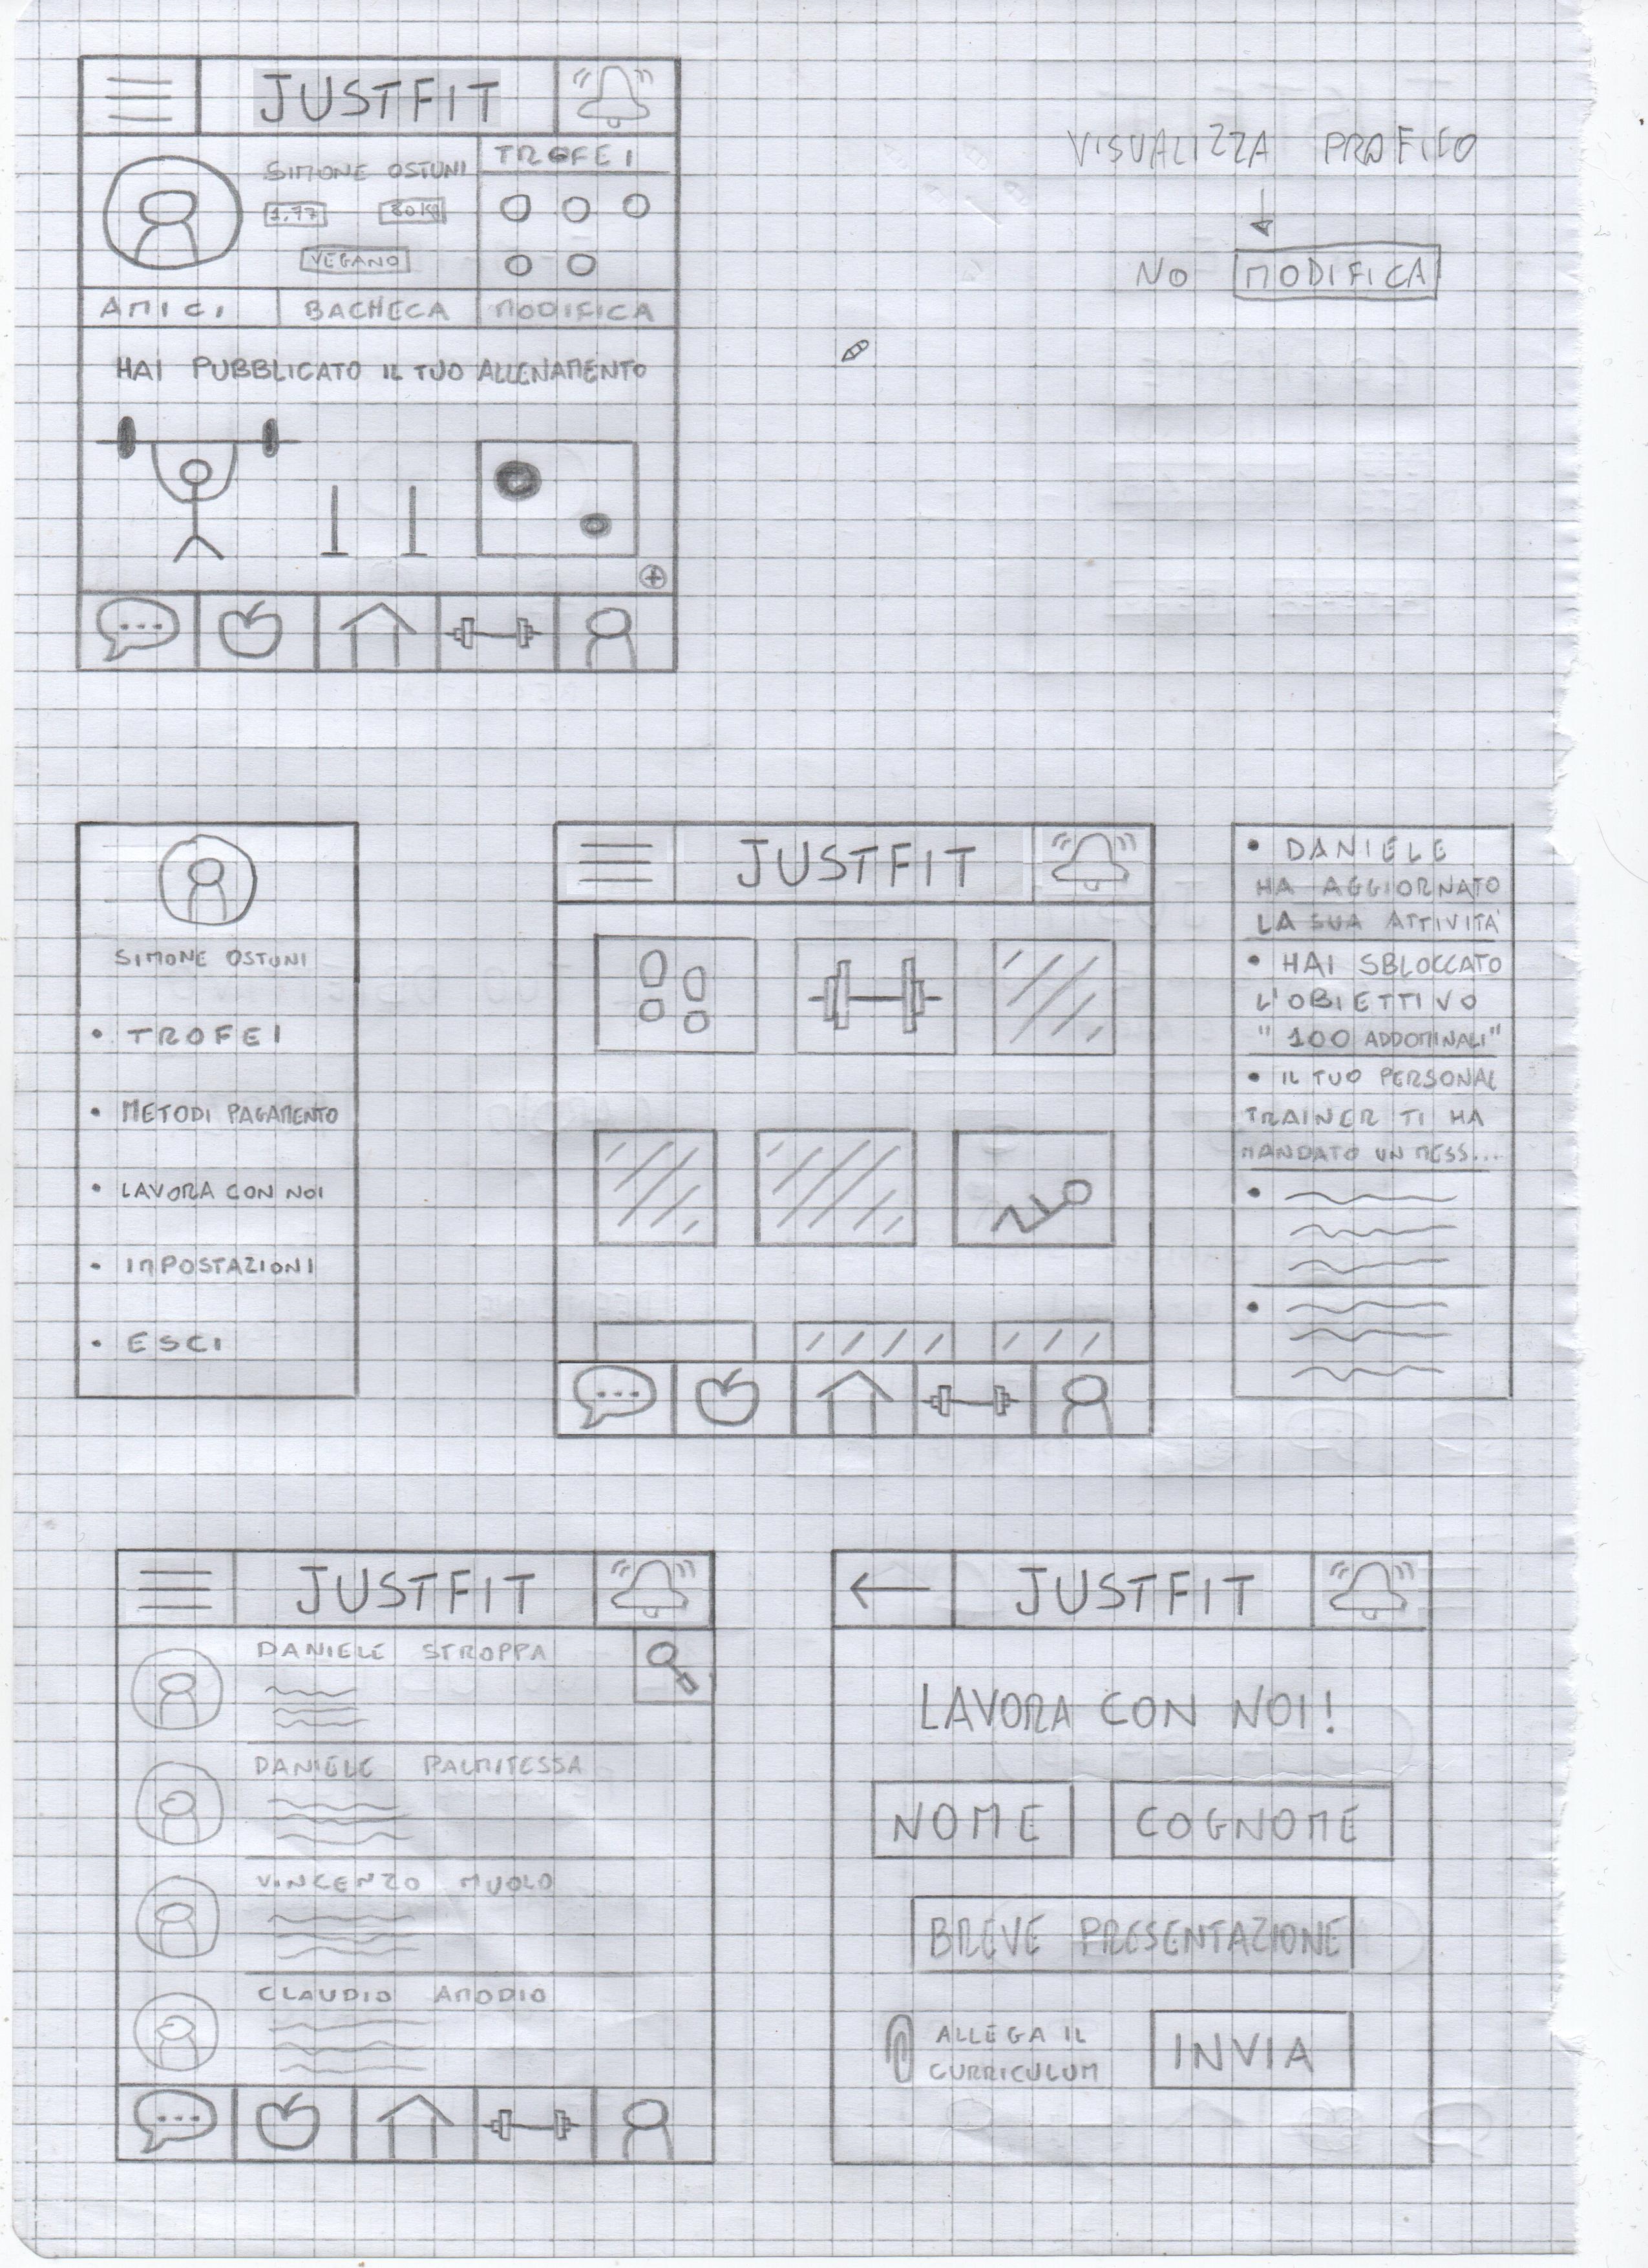 JUSTFIT
SIMONE OSTUNI
1,77 80 KG
VEGANO
TROFEI
AMICI BACHECA MODIFICA
HAI PUBBLICATO IL TUO ALLENAMENTO
VISUALIZZA PROFILO
NO MODIFICA
SIMONE OSTUNI
• TROFEI
• METODI PAGAMENTO
• LAVORA CON NOI
• IMPOSTAZIONI
• ESCI
JUSTFIT
• DANIELE
HA AGGIORNATO
LA SUA ATTIVITA'
• HAI SBLOCCATO
L'OBIETTIVO
"100 ADDOMINALI"
• IL TUO PERSONAL
TRAINER TI HA
MANDATO UN MESS...
JUSTFIT
DANIELE STROPPA
DANIELE PALMITESSA
VINCENZO MUOLO
CLAUDIO AMODIO
JUSTFIT
LAVORA CON NOI!
NOME COGNOME
BREVE PRESENTAZIONE
ALLEGA IL
CURRICULUM
INVIA